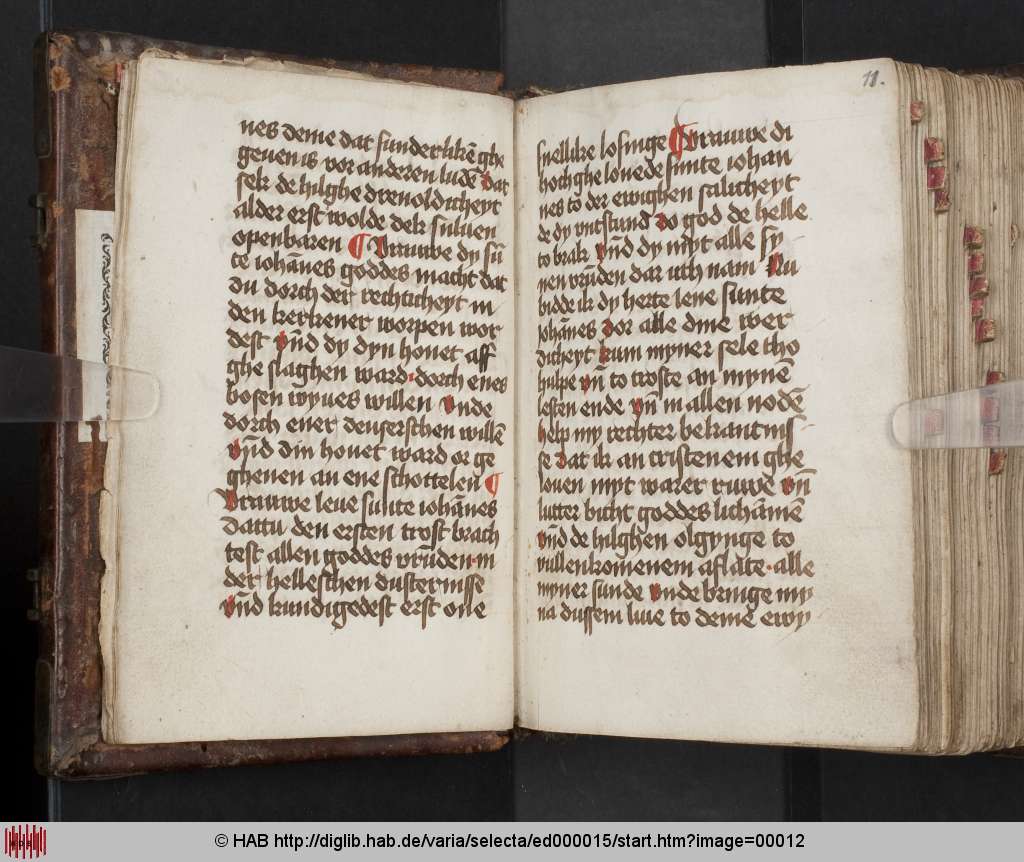 nes deme dat sunderlikē ghe
geuen is vor anderen ludē Dat
sek de hilghe dreuoldicheyt
alder erst wolde dek suluen
openbaren ¶ Vrauwe dy sū
te iohānes goddes macht dat
du dorch der rechticheyt in
den kerkener worpen wor
dest vn̄d dy dyn houet aff
ghe slaghen ward dorch enes
bosen wyues willen vnde
dorch ener deuserschen willē
vn̄d din houet ward or ge
gheuen an ene schottelen ¶
Vrauwe leue sunte iohānes
dattu den ersten trost brach
test allen goddes vrūden in
der helleschen dusternisse
vn̄d kundigedest erst one
11.
snellike losinge ¶ Vrauwe di
hoch ghe louede sunte iohan
nes to der ewighen salicheyt
de dy vntstund Do god de helle
to brak vn̄d dy myt alle sy
nen vrūden dar uth nam Nu
bidde ik dy herte leue sunte
iohānes Dor alle dine wer
dicheyt kum myner sele tho
hulpe vn̄ to troste an mynē
lesten ende vn̄ in allen nodē
help my rechter bekantnis
se Dat ik an cristenem ghe
louen myt warer ruwe vn̄
lutter bicht goddes lichāmē
vn̄d de hilghen olgynge to
vullenkomenem aflate alle
myner sunde vnde bringe my
na dussem liue to deme ewy
© HAB http://diglib.hab.de/varia/selecta/ed000015/start.htm?image=00012